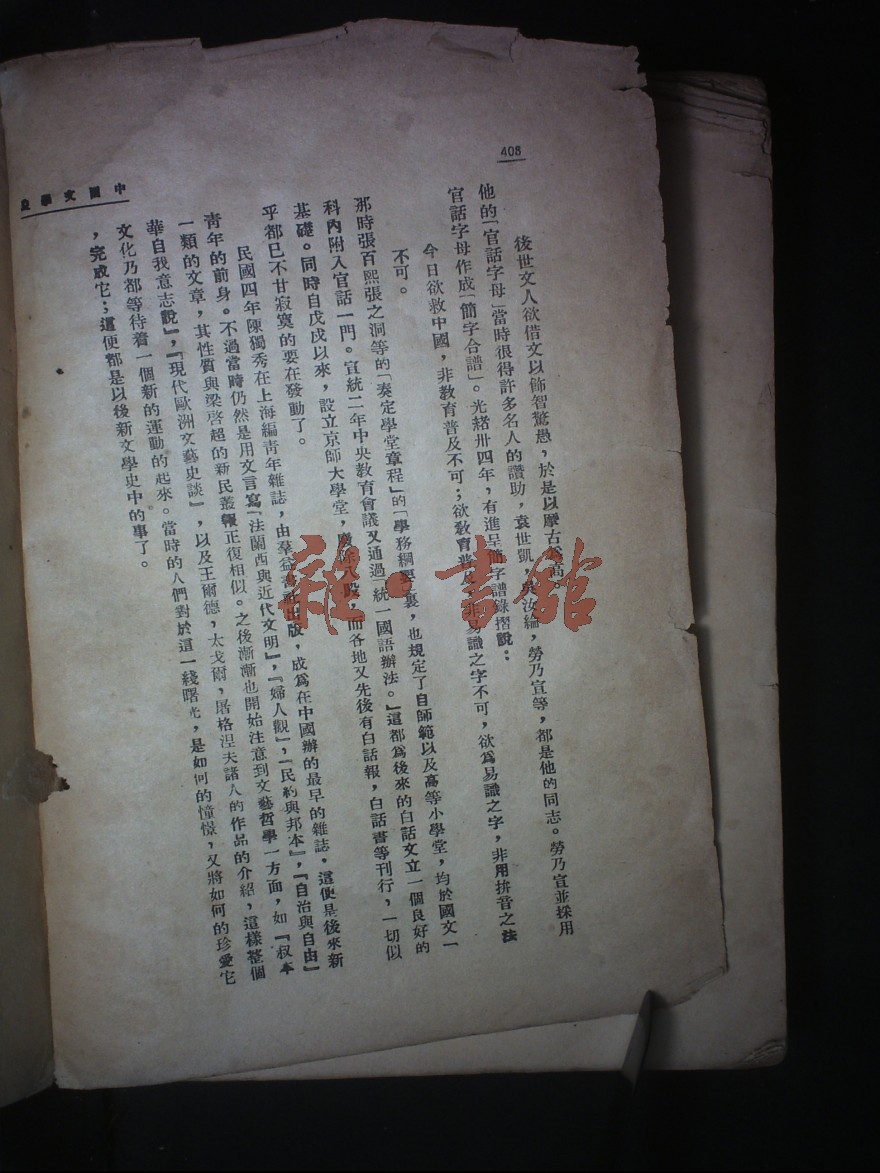 408
中國文學史
後世文人欲借文以飾智驚愚，於是以摩古為高。
他的「官話字母」當時很得許多名人的讚助，袁世凱，吳汝綸，勞乃宣等，都是他的同志。勞乃宣並採用
官話字母作成「簡字合譜」。光緒卅四年，有進呈簡字譜錄摺說：
今日欲救中國，非教育普及不可；欲教育普及，非易識之字不可，欲爲易識之字，非用拚音之法
不可。
那時張百熙張之洞等的「奏定學堂章程」的「學務綱要」裏，也規定了自師範以及高等小學堂，均於國文一
科內附入官話一門。宣統二年中央教育會議又通過「統一國語辦法。」這都爲後來的白話文立一個良好的
基礎。同時自戊戌以來，設立京師大學堂，廢除八股，而各地又先後有白話報，白話書等刊行，一切似
乎都已不甘寂寞的要在發動了。
民國四年陳獨秀在上海編靑年雜誌，由羣益書社出版，成爲在中國辦的最早的雜誌，這便是後來新
靑年的前身。不過當時仍然是用文言寫「法蘭西與近代文明」，「婦人觀」，「民約與邦本」，「自治與自由」
一類的文章，其性質與梁啓超的新民叢報正復相似。之後漸漸也開始注意到文藝哲學一方面，如「叔本
華自我意志說」，「現代歐洲文藝史談」，以及王爾德，太戈爾，屠格涅夫諸人的作品的介紹，這樣整個
文化乃都等待着一個新的運動的起來。當時的人們對於這一綫曙光，是如何的憧憬，又將如何的珍愛它
，完成它；這便都是以後新文學史中的事了。
雜·書館